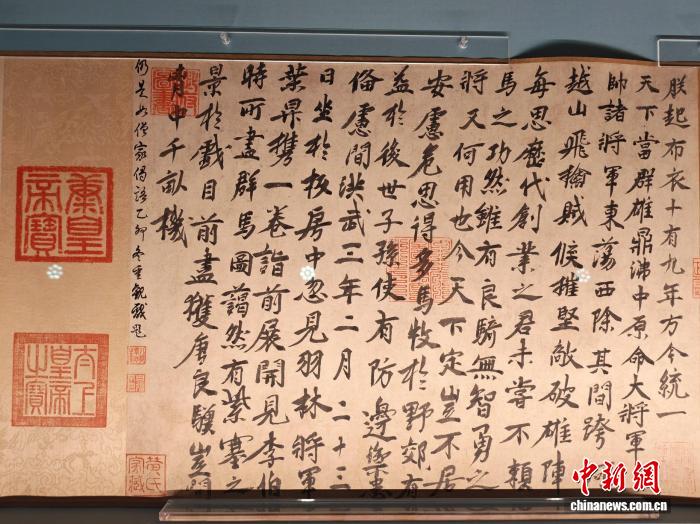 朕起布衣十有九年方今統一
天下當群雄鼎沸中原命大將軍
帥諸將軍東蕩西除其間跨
越山飛擒賊候摧堅敵破雄陣
每思歷代創業之君未嘗不賴
馬之功然雖有良騎無智勇之
將又何用也今天下定豈不居
安慮危思得多馬牧於野郊有
益於後世子孫使有防邊禦患
備慮間洪武三年二月二十三
日坐於板房中忽見羽林將軍
葉昇攜一卷詣前展開見李伯
時所畫群馬圖藹然有紫塞之
景於戲目前盡獲唐良驥豈問
胷中千畝機
仍是如僧家偈語乙卯冬重觀戲題
太上皇帝之寶
中新网
WWW.CHINANEWS.COM